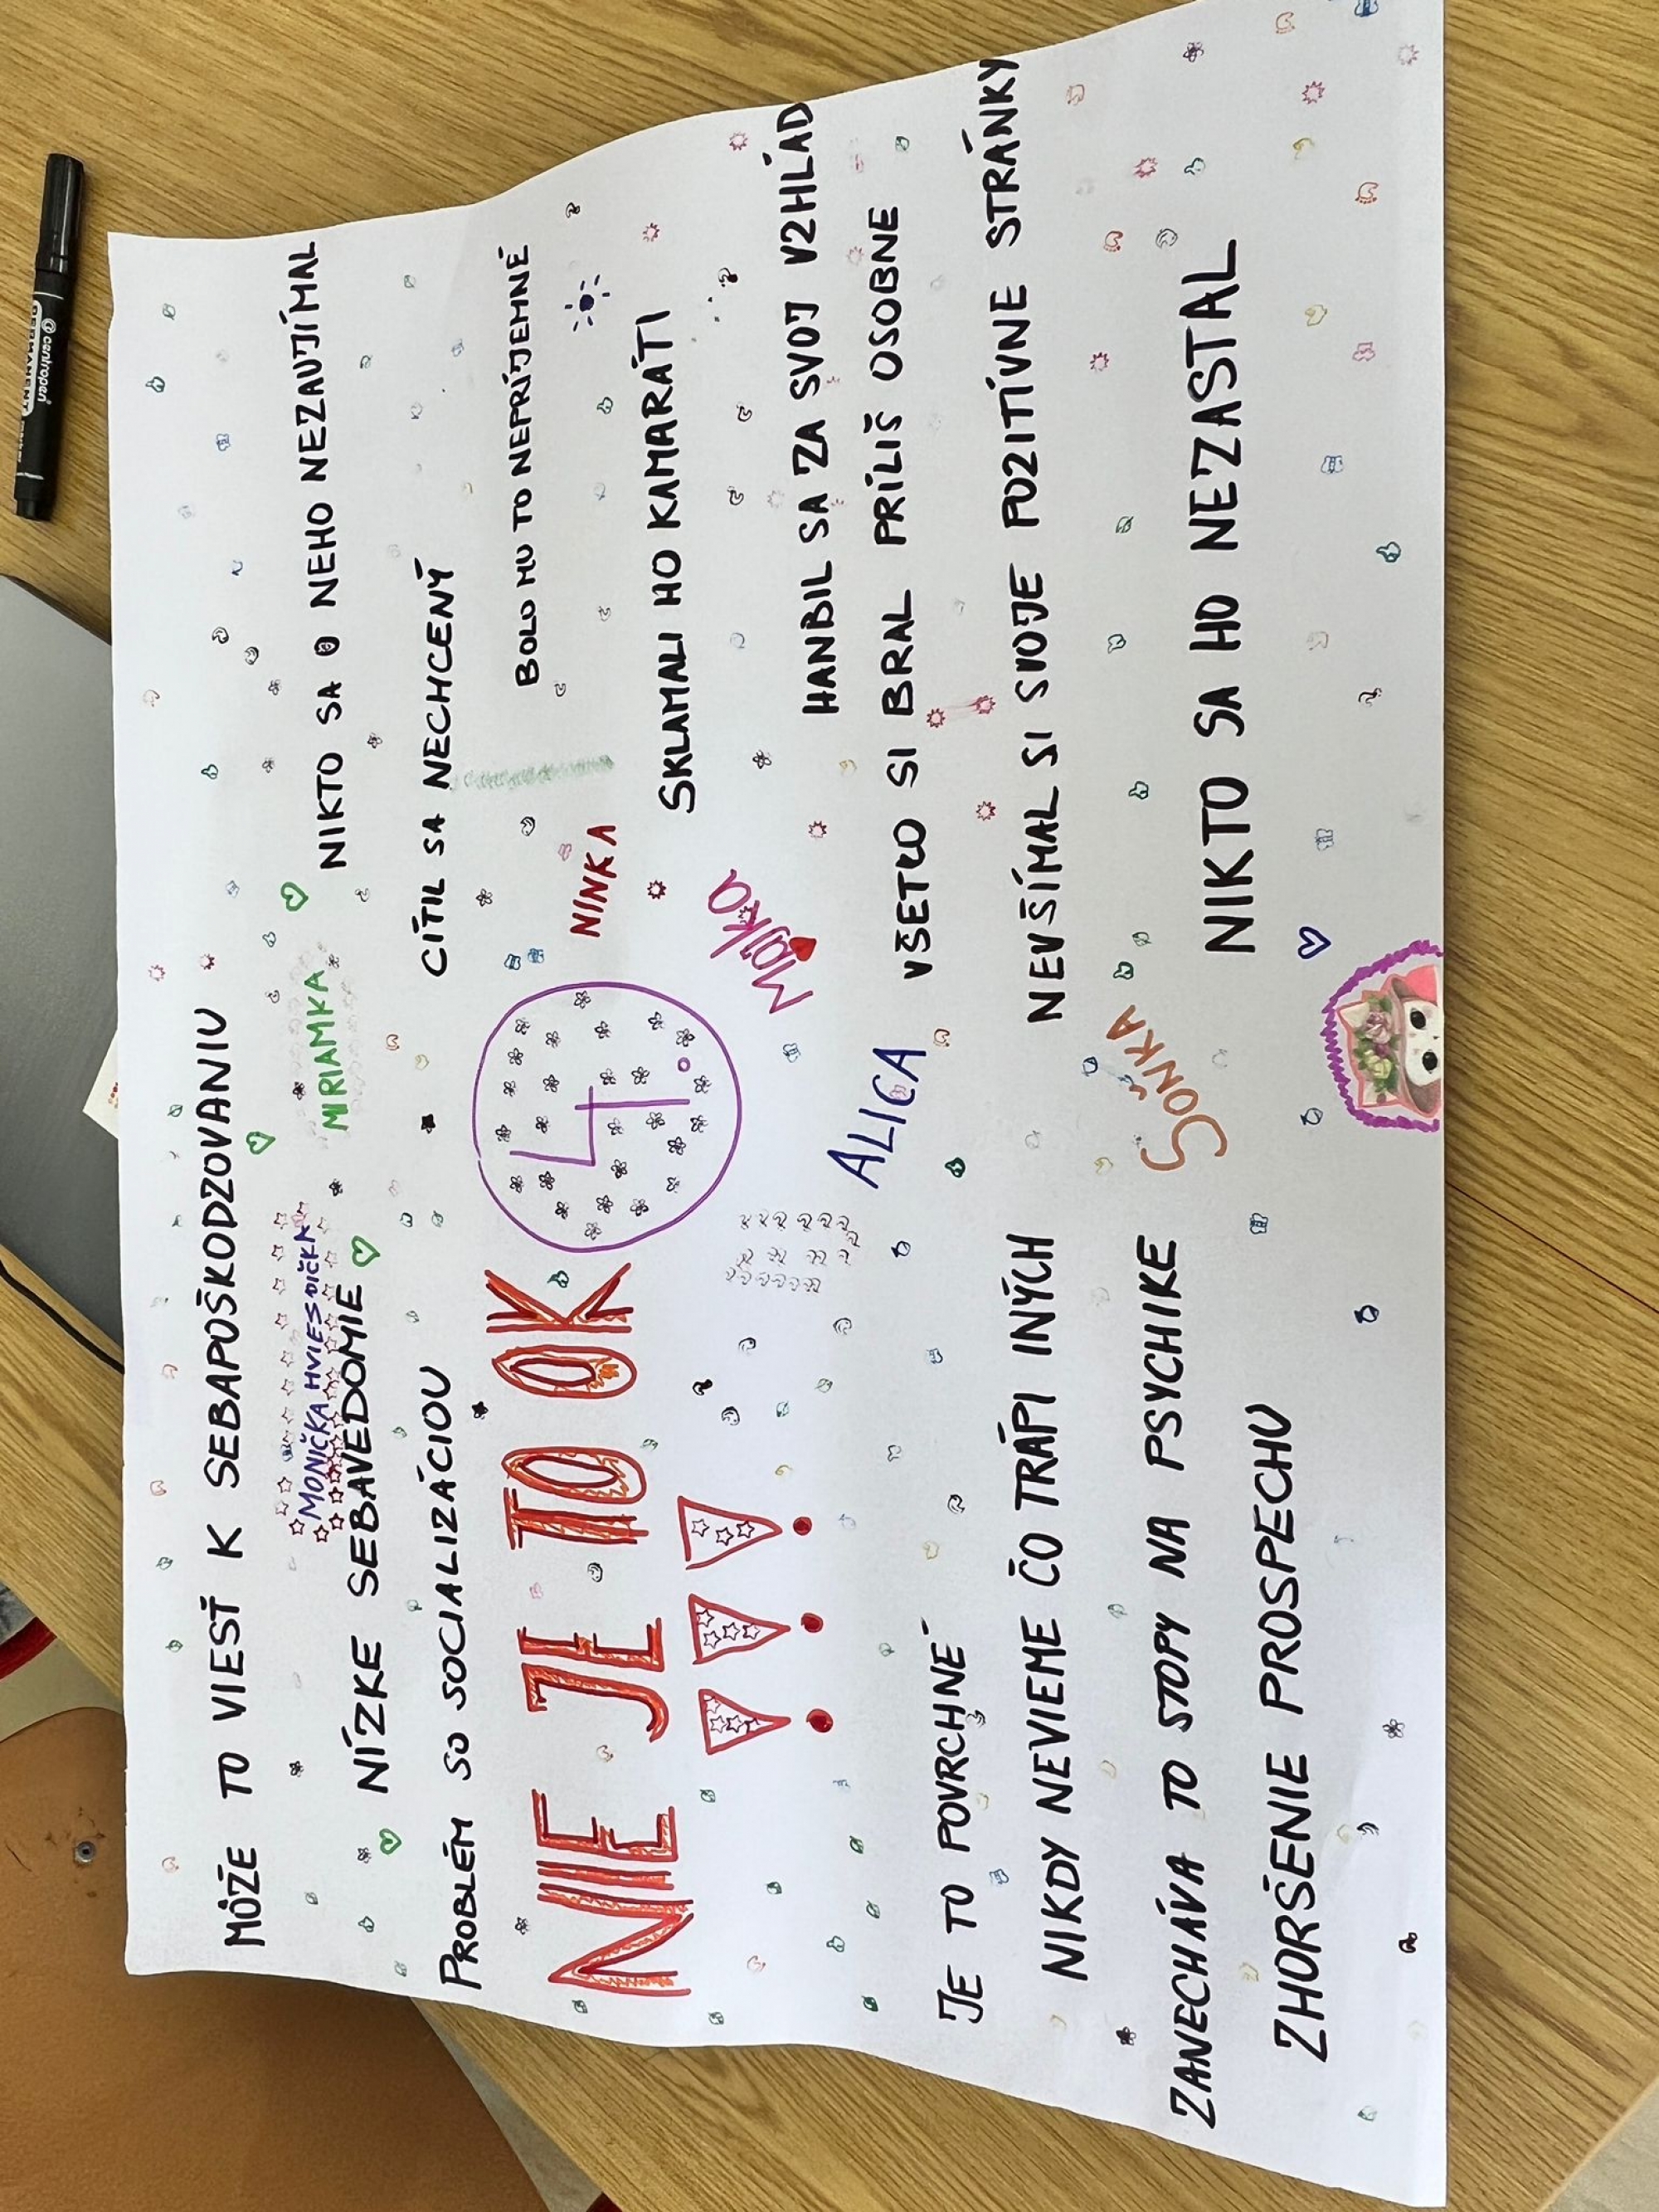 MÔŽE TO VIESŤ K SEBAPOŠKODZOVANIU
MONIČKA HVIESDIČKA
NÍZKE SEBAVEDOMIE
PROBLÉM SO SOCIALIZÁCIOU
NIE JE TO OK
!!!
JE TO POVRCHNÉ
NIKDY NEVIEME ČO TRÁPI INÝCH
ZANECHÁVA TO STOPY NA PSYCHIKE
ZHORŠENIE PROSPECHU
MIRIAMKA
4.
NINKA
Majka
ALICA
SOŇKA
NIKTO SA O NEHO NEZAUJÍMAL
CÍTIL SA NECHCENÝ
BOLO MU TO NEPRÍJEMNÉ
SKLAMALI HO KAMARÁTI
HANBIL SA ZA SVOJ VZHĽAD
VŠETKO SI BRAL PRÍLIŠ OSOBNE
NEVŠÍMAL SI SVOJE POZITÍVNE STRÁNKY
NIKTO SA HO NEZASTAL
centropen
PERMANENT